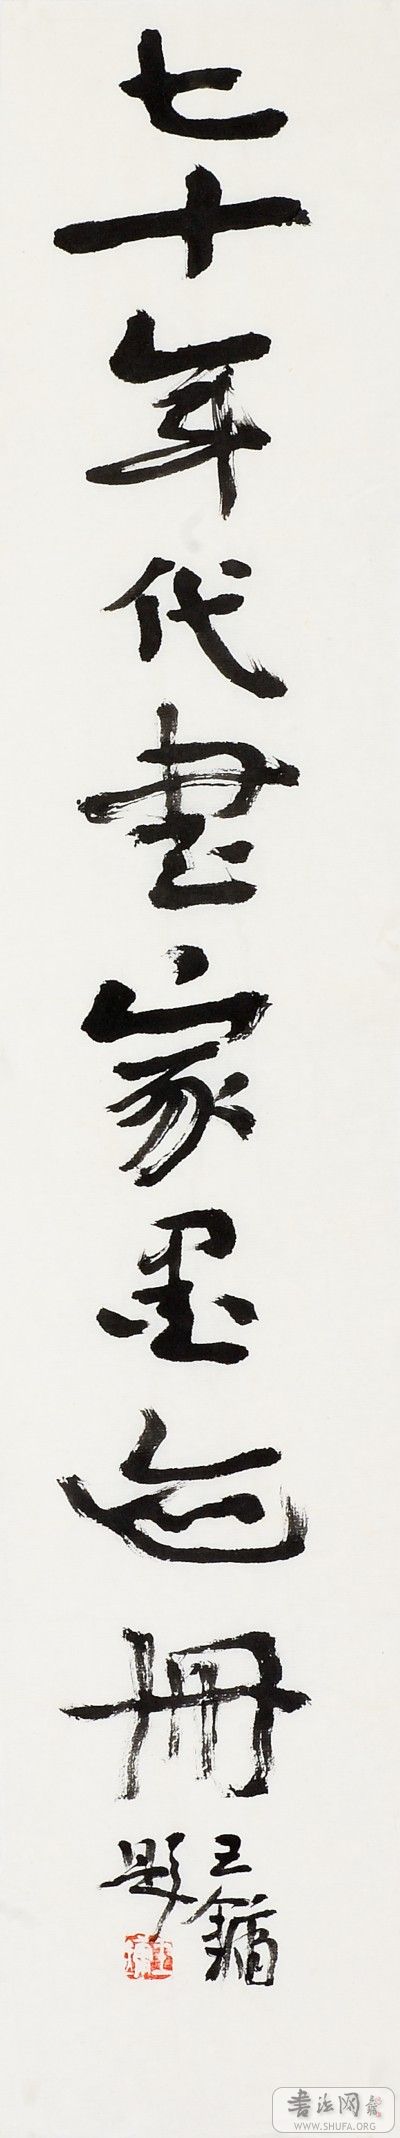 七十年代書家墨迹冊
王鏞
題
書法网
WWW.SHUFA.ORG